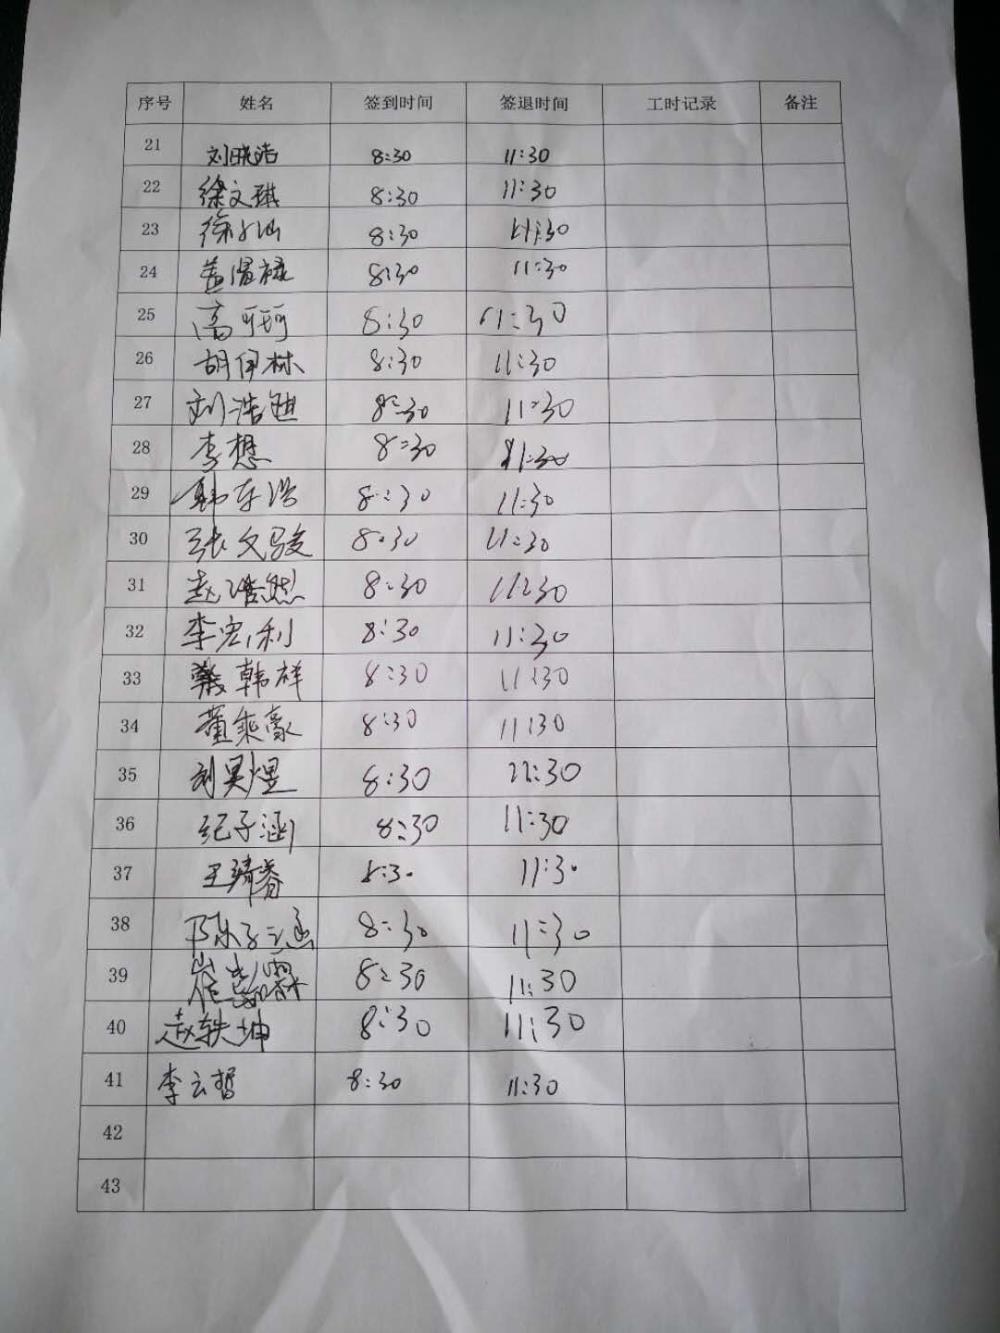 序号 姓名 签到时间 签退时间 工时记录 备注
21 刘晓浩 8:30 11:30
22 徐文琪 8:30 11:30
23 8:30 11:30
24 8:30 11:30
25 高可珂 8:30 11:30
26 胡伊林 8:30 11:30
27 刘浩 8:30 11:30
28 李想 8:30 11:30
29 韩东浩 8:30 11:30
30 张文骏 8:30 11:30
31 赵浩然 8:30 11:30
32 李宏利 8:30 11:30
33 韩祥 8:30 11:30
34 董乘豪 8:30 11:30
35 刘昊煜 8:30 11:30
36 纪子涵 8:30 11:30
37 王靖睿 8:30 11:30
38 陈子涵 8:30 11:30
39 崔 霖 8:30 11:30
40 赵轶坤 8:30 11:30
41 李云哲 8:30 11:30
42
43